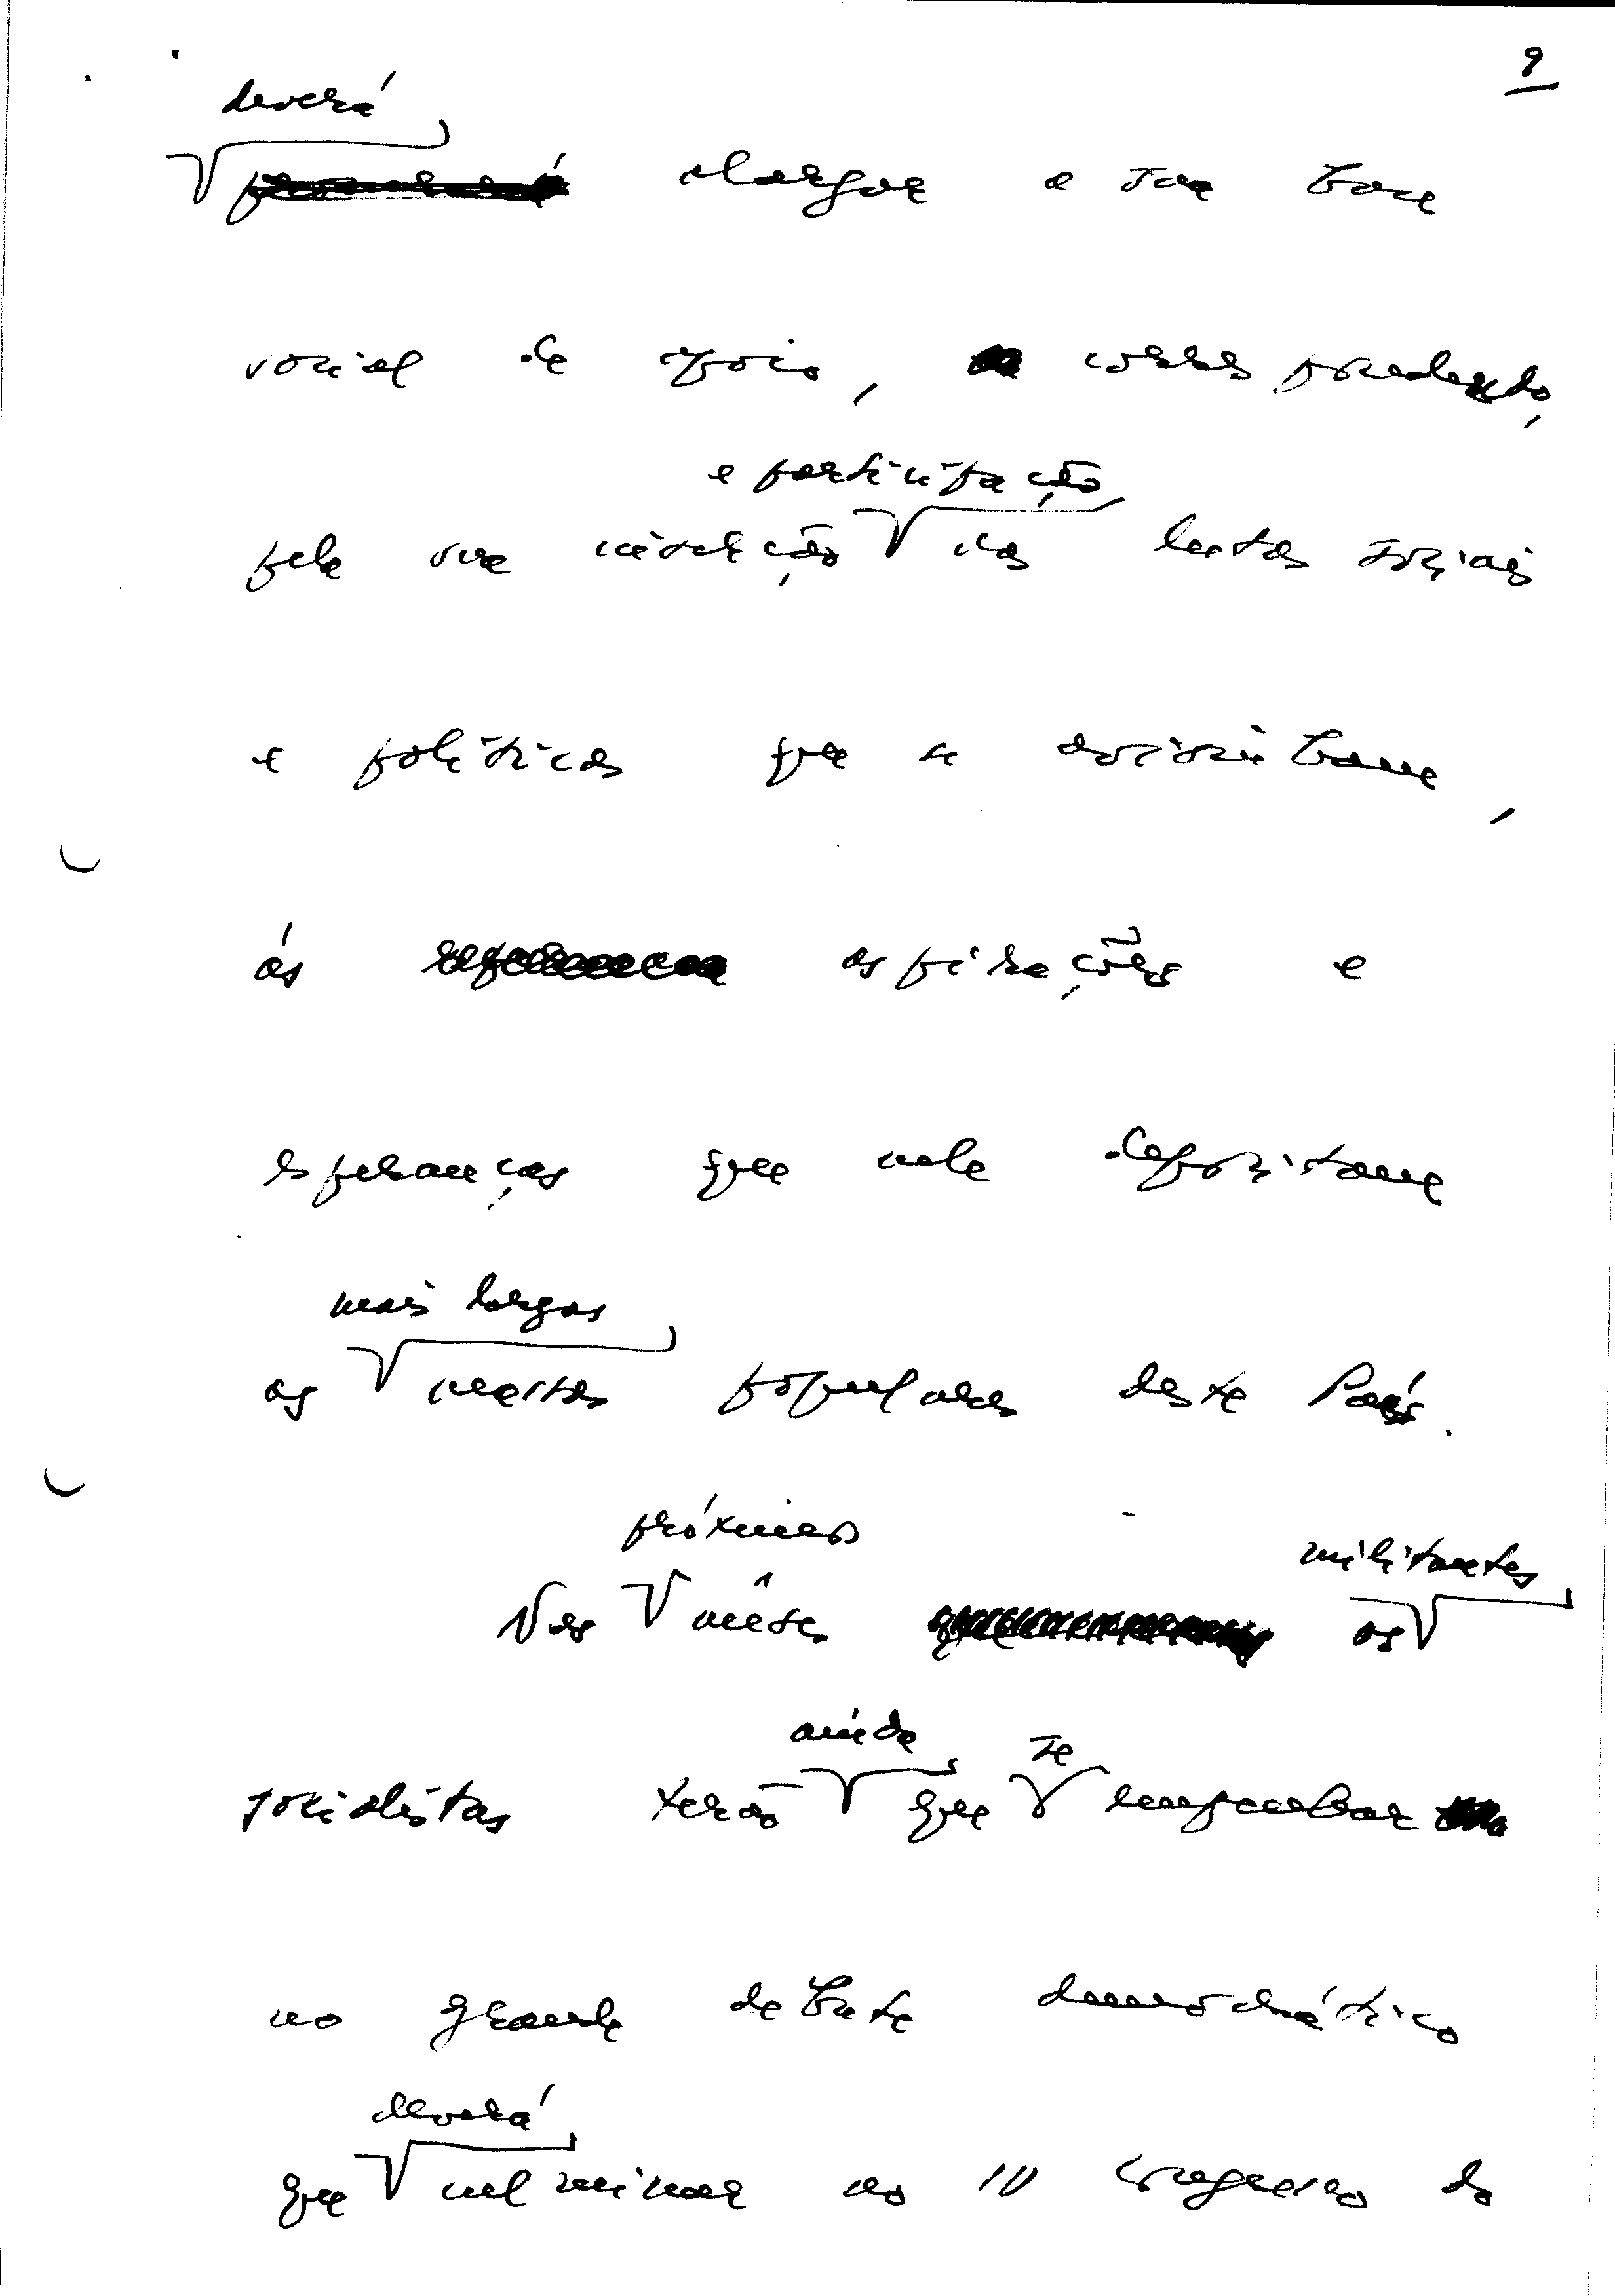 9
deverá
alargar a sua base
social de apoio, correspondendo,
e participação
pela sua inserção nas lutas sociais
e políticas que se avizinham,
às aspirações e
esperanças que nele depositam
mais largas
as massas populares deste País.
próximos militantes
Nos meses os
ainda se
socialistas terão que empenhar
no grande debate democrático
deverá
que culminar no IV Congresso do